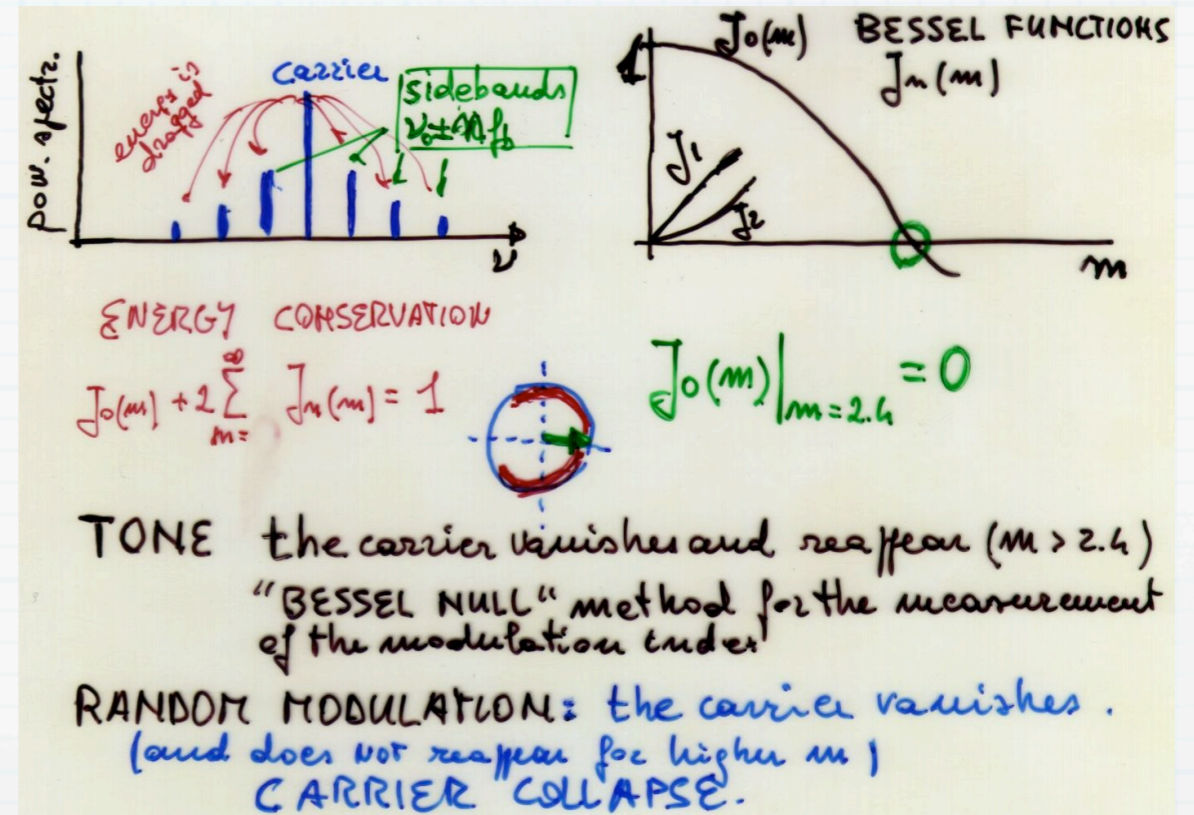 pow. spectr.
energy is
dragged
carrier
sidebands
ν₀ ± n f_b
ν
BESSEL FUNCTIONS
J_n(m)
J_0(m)
1
J_1
J_2
m
ENERGY CONSERVATION
J_0(m) + 2 ∑_{m=}^{∞} J_n(m) = 1
J_0(m)|_{m=2.4} = 0
TONE the carrier vanishes and reappear (m > 2.4)
"BESSEL NULL" method for the measurement
of the modulation index
RANDOM MODULATION: the carrier vanishes.
(and does not reappear for higher m)
CARRIER COLLAPSE.